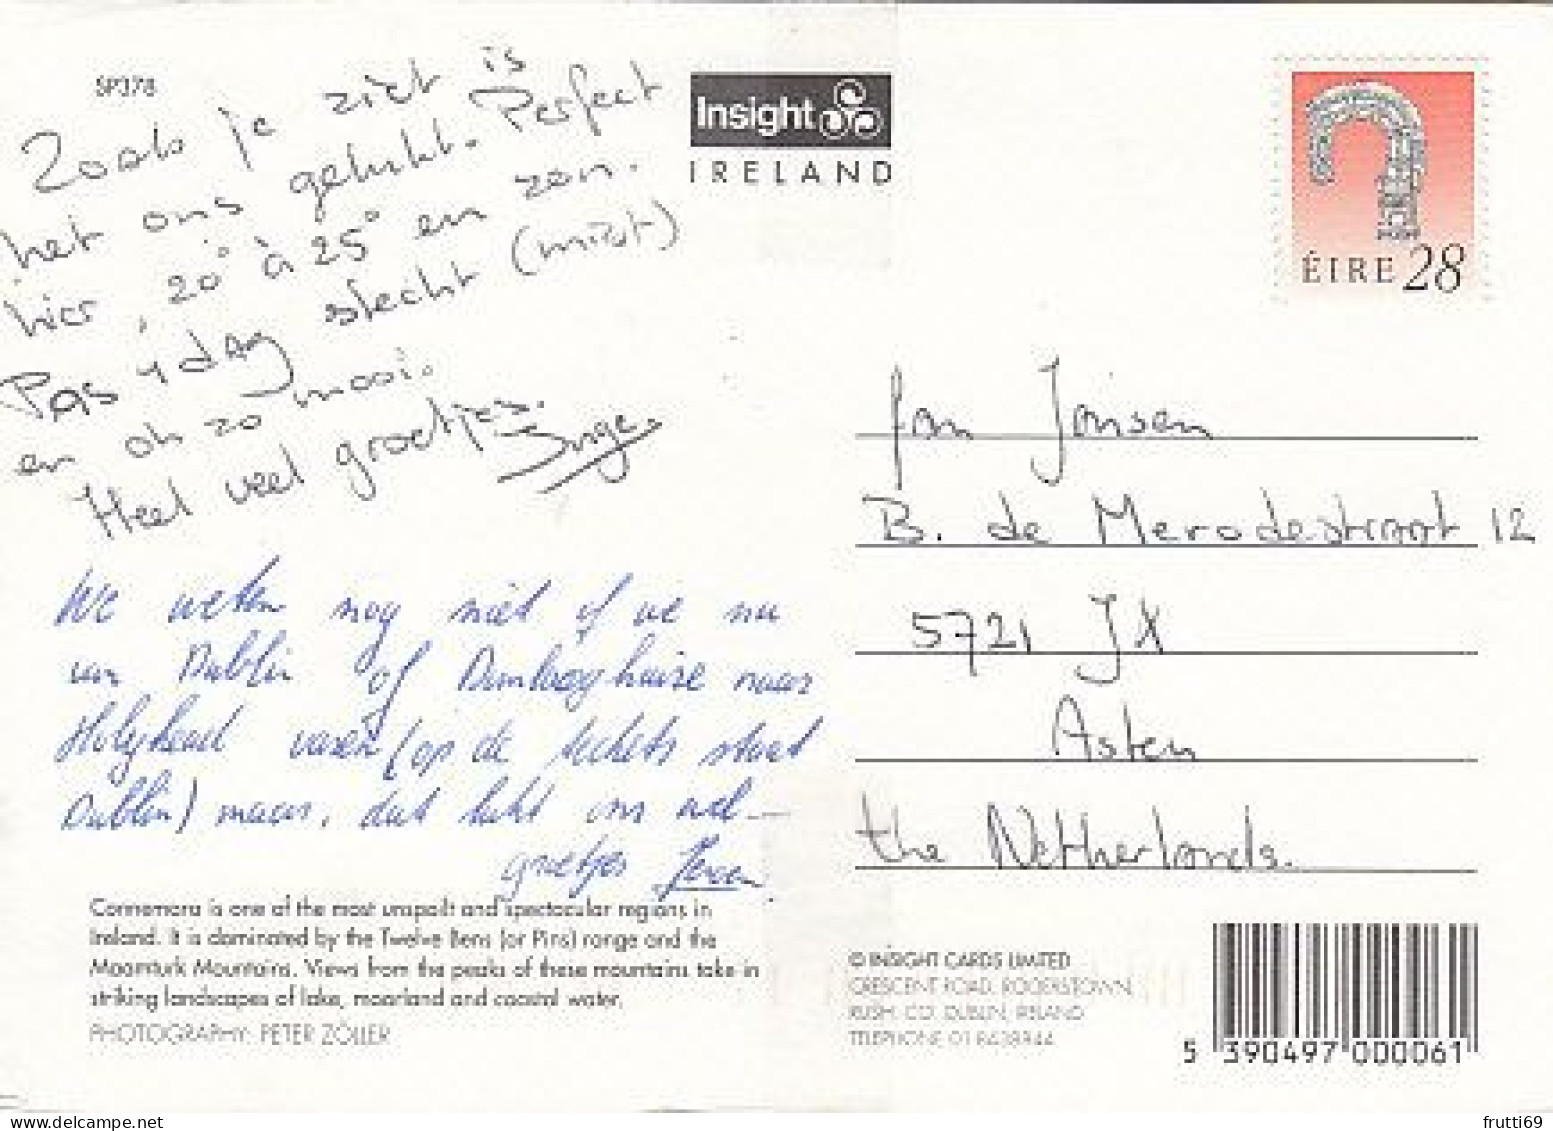 SP378
Zoals je ziet is
het ons gelukt. Perfect
hier, 20° à 25° en zon.
Pas 1 dag slecht (mist)
en oh zo mooi.
Heel veel groetjes.
Inge.
We weten nog niet of we nu
van Dublin of Dunlaoghaire naar
Holyhead varen (op de tickets staat
Dublin) maar, dat lukt ons wel—
groetjes Jeroen
Connemara is one of the most unspoilt and spectacular regions in
Ireland. It is dominated by the Twelve Bens (or Pins) range and the
Maamturk Mountains. Views from the peaks of these mountains take in
striking landscapes of lake, moorland and coastal water.
PHOTOGRAPHY: PETER ZÖLLER
Insight
IRELAND
ÉIRE 28
Jansen
B. de Merodestraat 12
5721 JX
Asten
the Netherlands.
© INSIGHT CARDS LIMITED
CRESCENT ROAD, ROGERSTOWN,
RUSH, CO. DUBLIN, IRELAND
TELEPHONE 01 8438944
5 390497 000061
frutti69